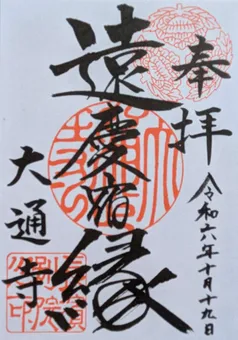 奉拝
令和六年十月十九日
遠慶宿縁
大通寺